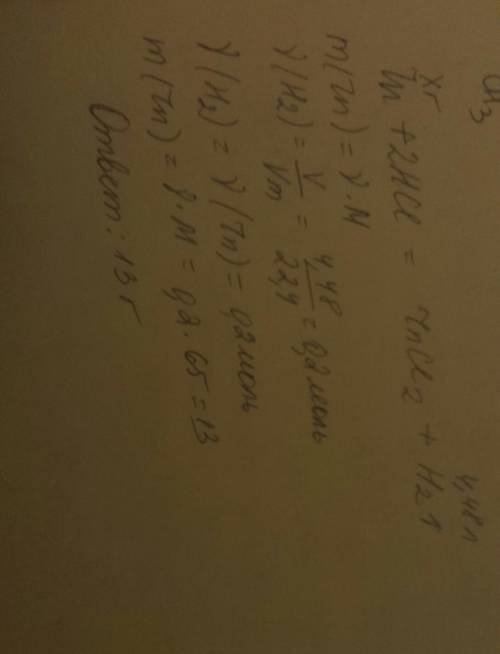 CH3
Xг 4,48л
Zn + 2HCl = ZnCl2 + H2↑
m(Zn) = γ·M
γ(H2) = V/Vm = 4,48/22,4 = 0,2 моль
γ(H2) = γ(Zn) = 0,2 моль
m(Zn) = γ·M = 0,2·65 = 13
Ответ: 13 г